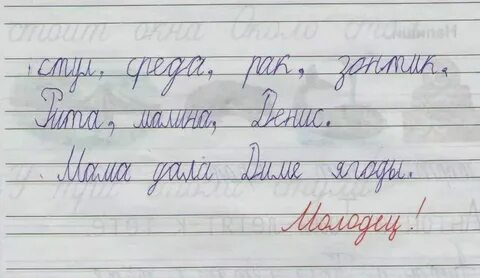 стул, среда, рак, зонтик,
Рита, малина, Денис.
Мама дала Диме ягоды.
Молодец!